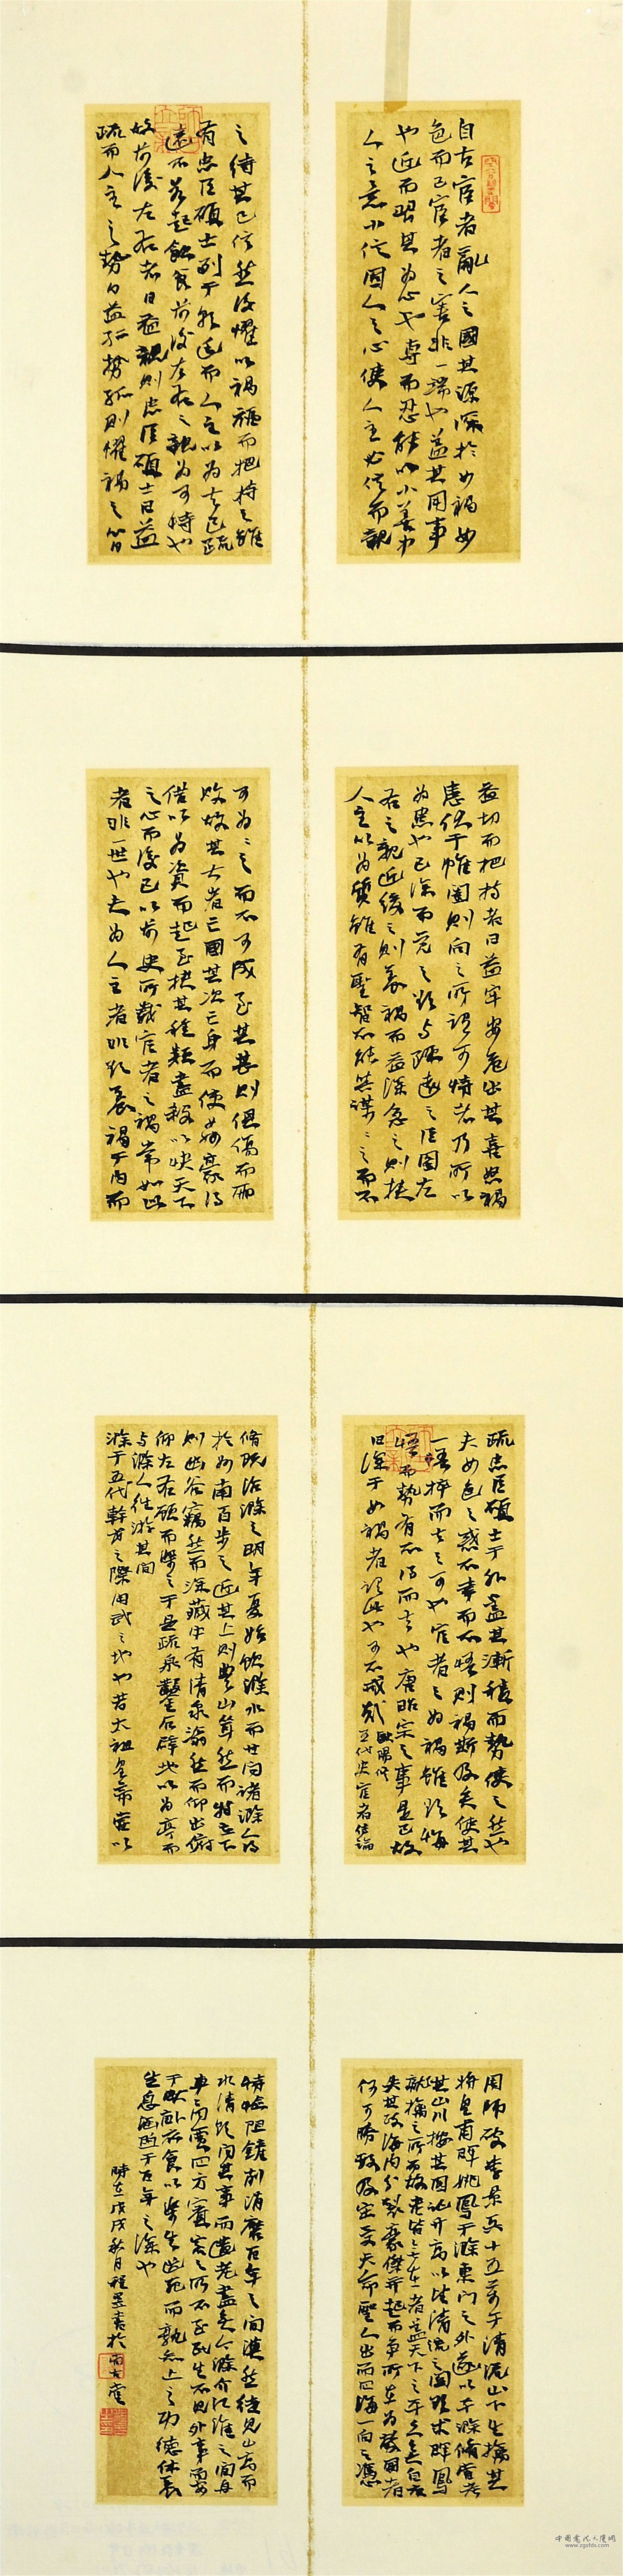 自古宦者亂人之國其源深於女禍女
色而已宦者之害非一端也蓋其用事
也近而習其為心也專而忍能以小善中
人之意小信固人之心使人主必信而親
之待其已信然後懼以禍福而把持之雖
有忠臣碩士列于朝廷而人主以為去己疏
遠不若起飲食前後左右之親為可恃也
故前後左右者日益親則忠臣碩士日益
疏而人主之勢日益孤勢孤則懼禍之心日
益切而把持者日益牢安危出其喜怒禍
患伏于帷闥則向之所謂可恃者乃所以
為患也已深而覺之欲与疏遠之臣圖左
右之親近緩之則養禍而益深急之則挾
人主以為質雖有聖智不能共謀〻之而不
可為〻之而不可成至其甚則俱傷而兩
敗故其大者亡國其次亡身而使奸豪得
借以為資而起至抉其種類盡殺以快天下
之心而後已此前史所載宦者之禍常如此
者非一世也夫為人主者非欲養禍于內而
疏忠臣碩士于外蓋其漸積而勢使之然也
夫女色之惑不幸而不悟則禍斯及矣使其
一悟捽而去之可也宦者之為禍雖欲悔
悟而勢有不得而去也唐昭宗之事是已故
曰深于女禍者謂此也可不戒哉 歐陽修
五代史宦者傳論
脩既治滁之明年夏始飲滁水而甘问諸滁人得
於州南百步之近其上則豐山聳然而特立下
則幽谷窈然而深藏中有清泉滃然而仰出俯
仰左右顧而樂之于是疏泉鑿石辟地以為亭而
与滁人往游其間
滁于五代幹戈之際用武之地也昔太祖皇帝嘗以
周師破李景兵十五萬于清流山下生擒其
將皇甫暉姚鳳于滁東門之外遂以平滁脩嘗考
其山川按其圖記升高以望清流之關欲求暉鳳
就擒之所而故老皆無在者蓋天下之平久矣自唐
失其政海內分裂豪傑並起而爭所在為敵國者
何可勝數及宋受天命聖人出而四海一向之憑
恃險阻鏟削消磨百年之間漠然徒見山高而
水清欲问其事而遺老盡矣今滁介江淮之間舟
車商賈四方賓客之所不至民生不見外事而安
于畎畝衣食以樂生送死而孰知上之功德休養
生息涵煦于百年之深也
時在戊戌秋月程昱書於尚古堂
中国书法大厦网
www.zgsfds.com